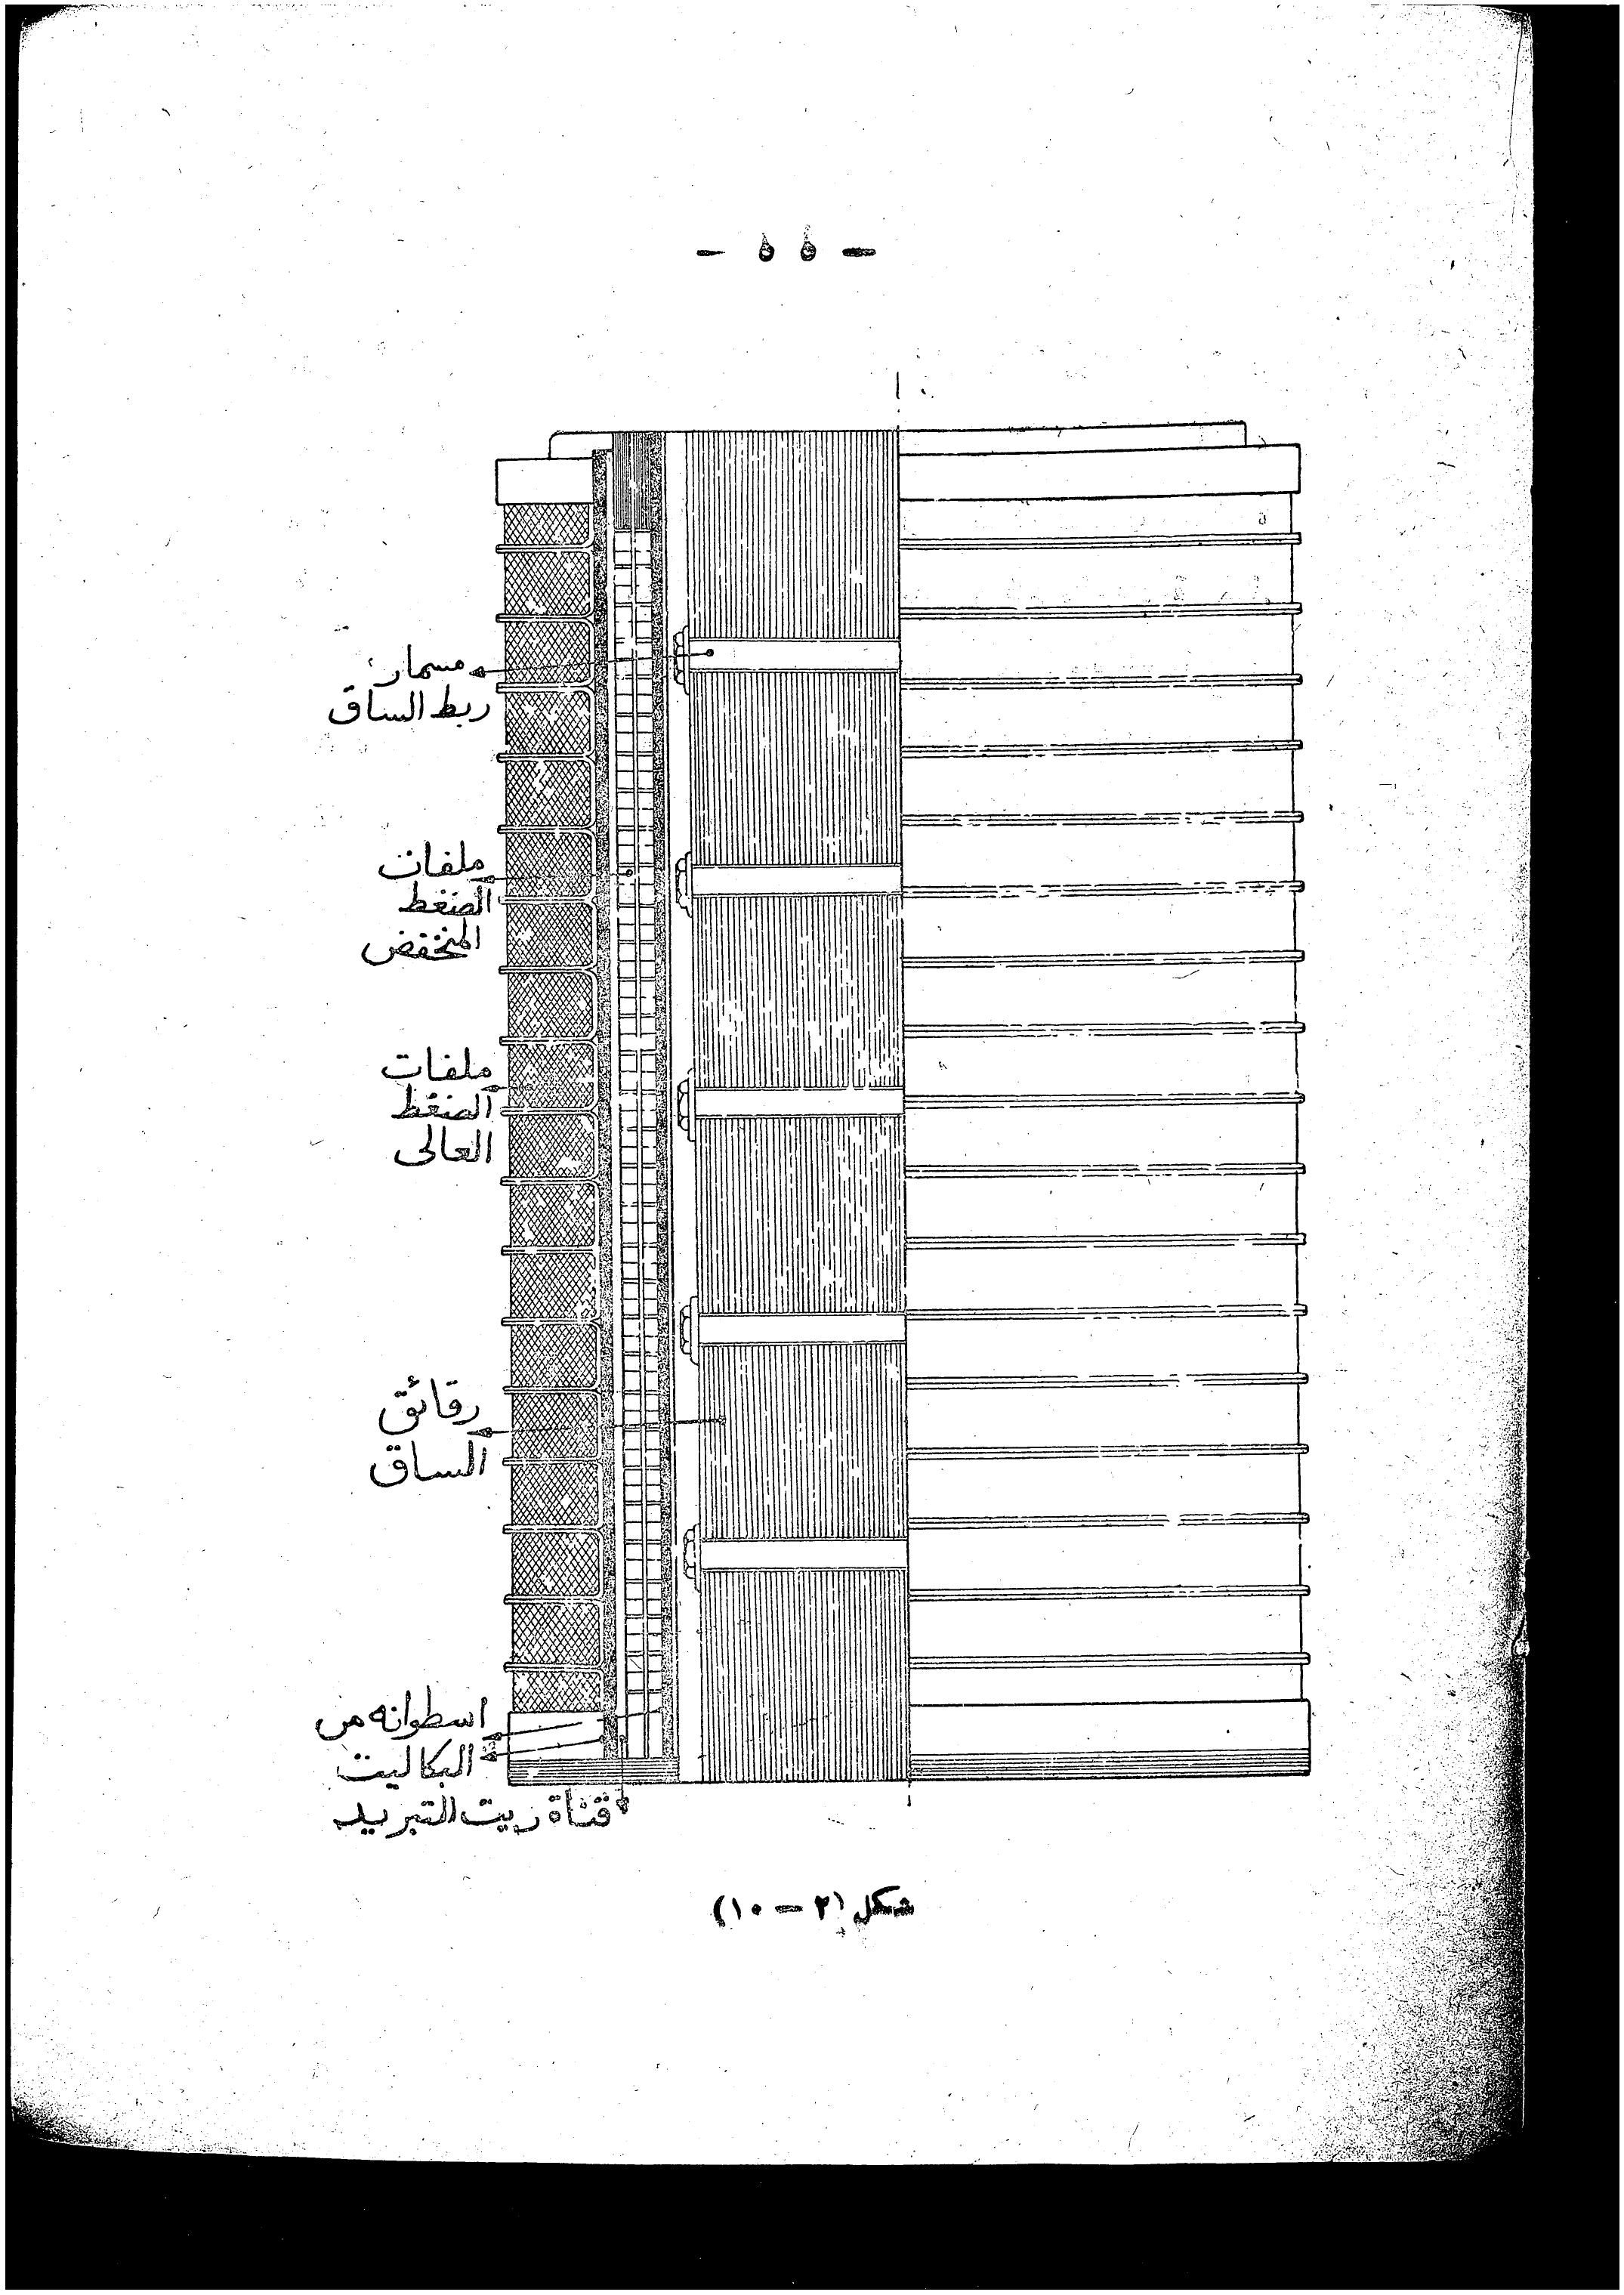 - ٥٥ -
مسمار
ربط الساق
ملفات
الضغط
المنخفض
ملفات
الضغط
العالى
رقائق
الساق
اسطوانه من
البكاليت
قناة زيت التبريد
شكل (٢ - ١٠)